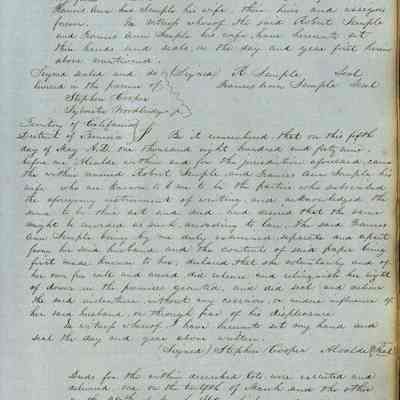 Francis Ann his Semple his wife, their heirs and assigns
forever. In witness whereof the said Robert Semple
and Francis Ann Semple his wife have hereunto set
their hands and seals, on the day and year first herein
above mentioned.
Signed sealed and de (Signed) R. Semple Seal
livered in the presence of Francis Ann Semple Seal
Stephen Cooper
Sylvester Woodbridge Jr
Territory of California
District of Benicia } Be it remembered that on this fifth
day of May A.D. one thousand eight hundred and forty nine.
before me Alcalde within and for the jurisdiction aforesaid, came
the within named Robert Semple and Frances Ann Semple his
wife who are known to me to be the parties who subscribed
the foregoing instrument of writing, and acknowledged the
same to be their act and deed, and desired that the same
might be recorded as such according to law. The said Frances
Ann Semple being by me duly examined separate and apart
from her said husband, and the contents of said paper being
first made known to her, declared that she voluntarily and of
her own free will and accord did release and relinquish her right
of dower in the premises granted, and did seal and deliver
the said indenture without any coercion, or undue influence of
her said husband or through fear of his displeasure.
In witness whereof I have hereunto set my hand and
seal the day and year above written.
(Signed) Stephen Cooper Alcalde Seal
Deeds for the within described lots, were executed and
delivered, one on the twelfth of March and the other